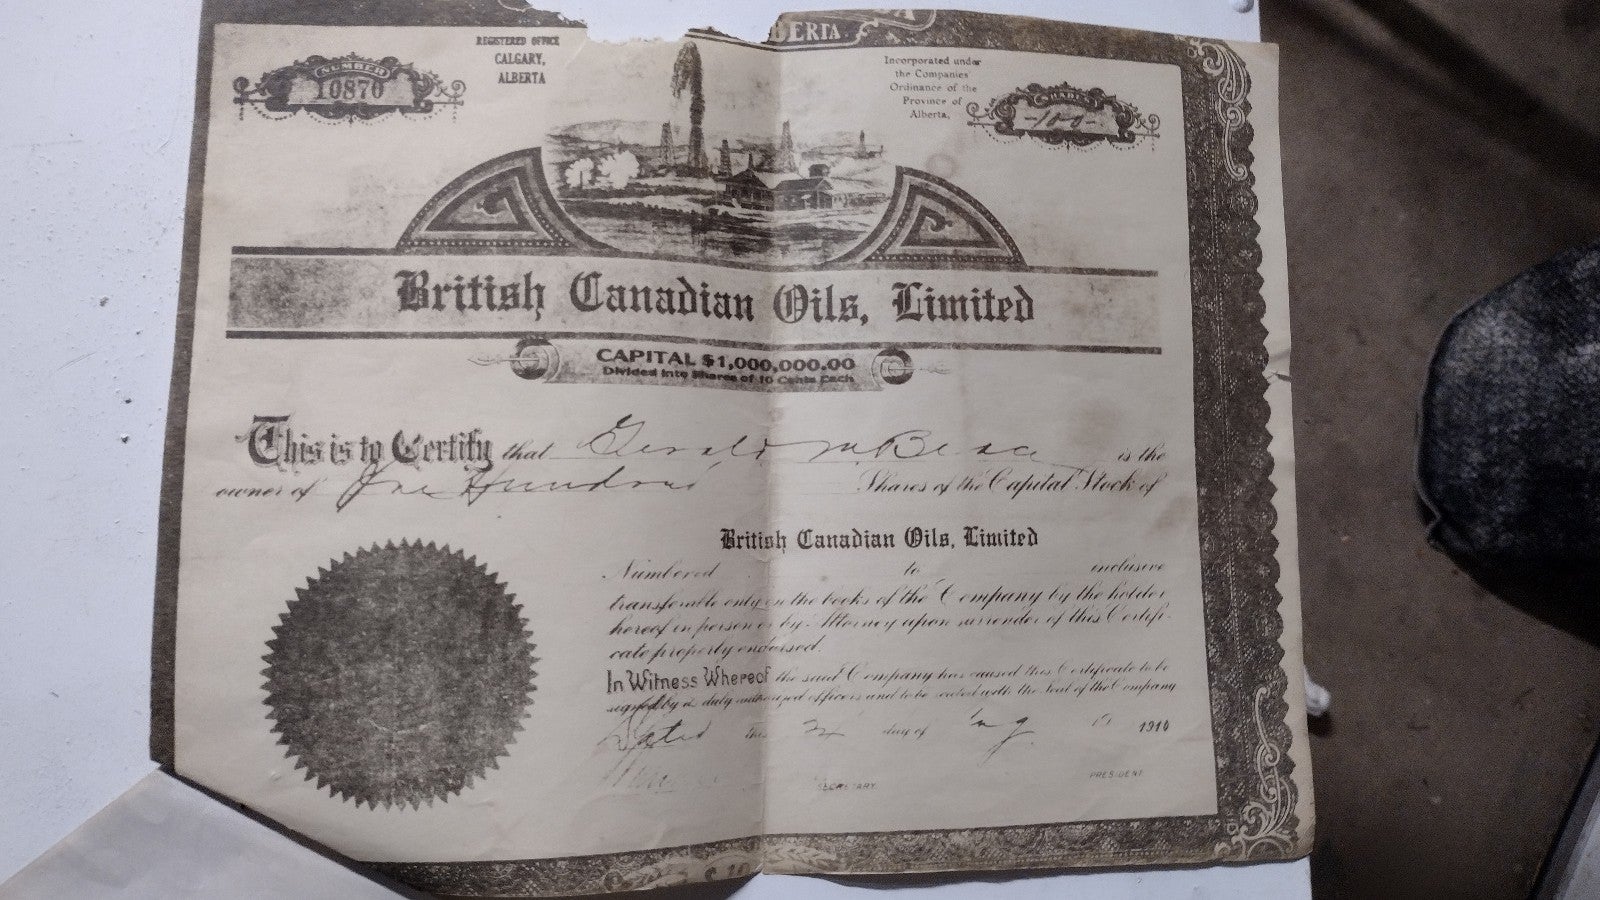 BERTA.
REGISTERED OFFICE
CALGARY,
ALBERTA
Incorporated under
the Companies'
Ordinance of the
Province of
Alberta.
NUMBER
10870
SHARES
-100-
British Canadian Oils, Limited
CAPITAL $1,000,000.00
Divided into Shares of 10 Cents Each
This is to Certify that Gerald is the
owner of One Hundred Shares of the Capital Stock of
British Canadian Oils, Limited
Numbered to inclusive
transferable only on the books of the Company by the holder
hereof in person or by Attorney upon surrender of this Certifi-
cate properly endorsed.
In Witness Whereof the said Company has caused this Certificate to be
signed by its duly authorized officers and to be sealed with the Seal of the Company
Dated this day of Aug 1910
SECRETARY
PRESIDENT